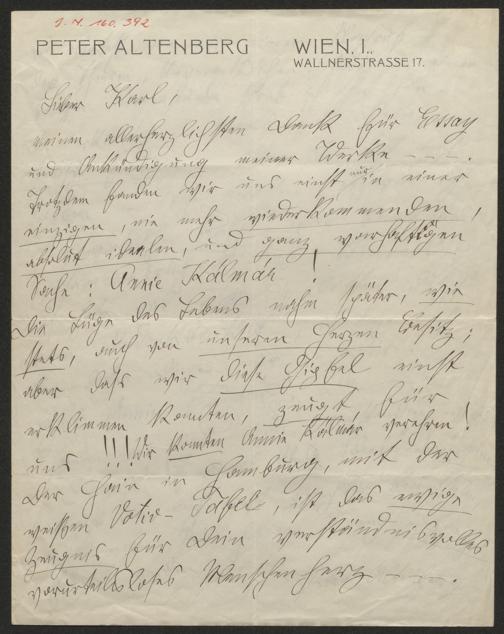 J. N. 160.392
PETER ALTENBERG WIEN, I.,
WALLNERSTRASSE 17.
Lieber Karl,
meinen allerherzlichsten Dank für Essay
und Ankündigung meiner Werke — — .
Trotzdem fanden wir uns einst nur in einer
einzigen, nie mehr wiederkommenden,
absolut idealen, und ganz wahrhaftigen
Sache: Annie Kálmár!
Die Lüge des Lebens nahm später, wie
stets, auch von unseren Herzen Besitz;
aber dass wir diese Gipfel einst
erklimmen konnten, zeugt für
uns!!! Wir konnten Annie Kálmár verehren!
Der Hain in Hamburg, mit der
weißen Votiv-Tafel, ist das ewige
Zeugnis für Dein verständnisvolles
vorurteilsloses Menschenherz — — .